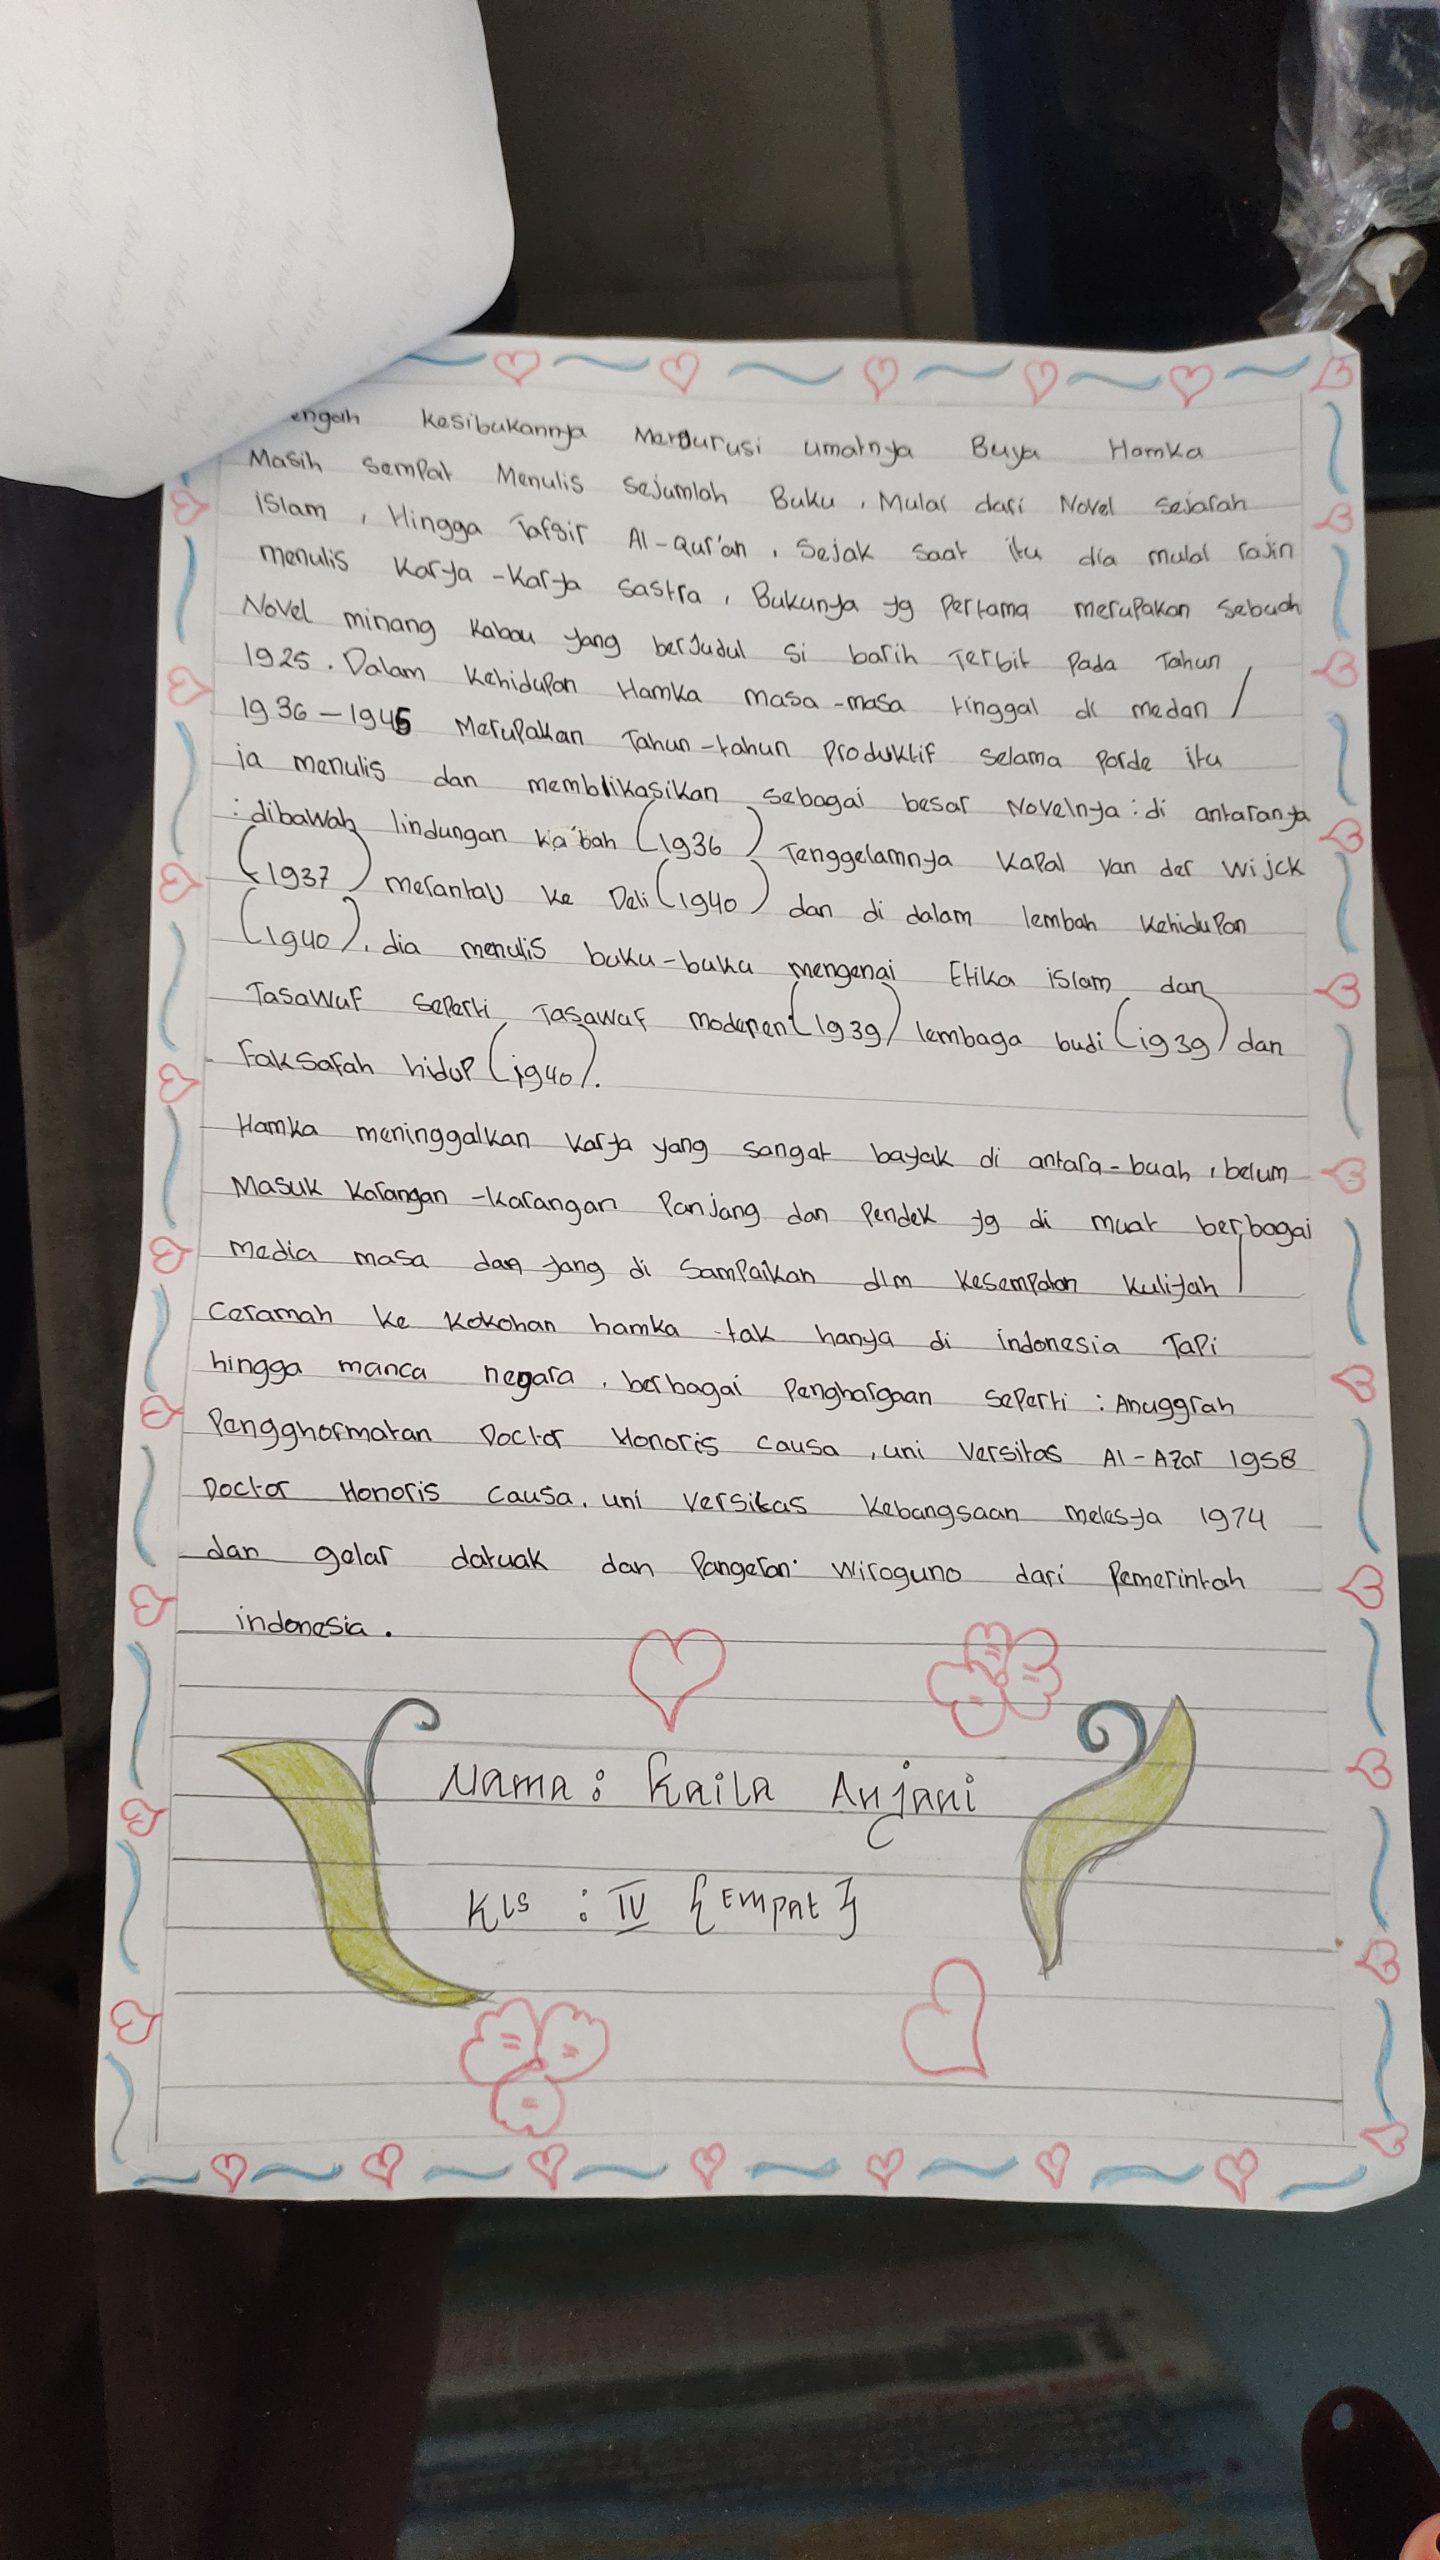 engah kesibukannya Mengurusi umatnya Buya Hamka
Masih sempat Menulis sejumlah Buku, Mulai dari Novel sejarah
islam, Hingga Tafsir Al-Qur'an, Sejak saat itu dia mulai rajin
menulis Karya-Karya sastra, Bukunya yg Pertama merupakan sebuah
Novel minang kabau yang berjudul si barih Terbit Pada Tahun
1925. Dalam Kehidupan Hamka masa-masa tinggal di medan /
1936-1945 Merupakan Tahun-tahun Produktif selama Porde itu
ia menulis dan memblikasikan sebagai besar Novelnya: di antaranya
: dibawah lindungan ka'bah (1936) Tenggelamnya Kapal Van der Wijck
(1937) merantau ke Deli (1940) dan di dalam lembah kehidupan
(1940), dia menulis buku-buku mengenai Etika islam dan
Tasawuf seperti Tasawuf moderen (1939) lembaga budi (1939) dan
Faksafah hidup (1940).
Hamka meninggalkan karya yang sangat bayak di antara-buah, belum
Masuk karangan-karangan Panjang dan Pendek yg di muat berbagai
media masa dan yang di sampaikan dlm kesempatan kuliyah /
Ceramah ke kokohan hamka tak hanya di indonesia Tapi
hingga manca negara, berbagai Penghargaan seperti: Anuggrah
Pengghormatan Doctor Honoris causa, uni versitas Al-Azar 1958
Doctor Honoris causa, uni versitas kebangsaan melesya 1974
dan gelar datuak dan Pangeran wiroguno dari Pemerintah
indonesia.
Nama: Kaila Anjani
Kls : IV {Empat}